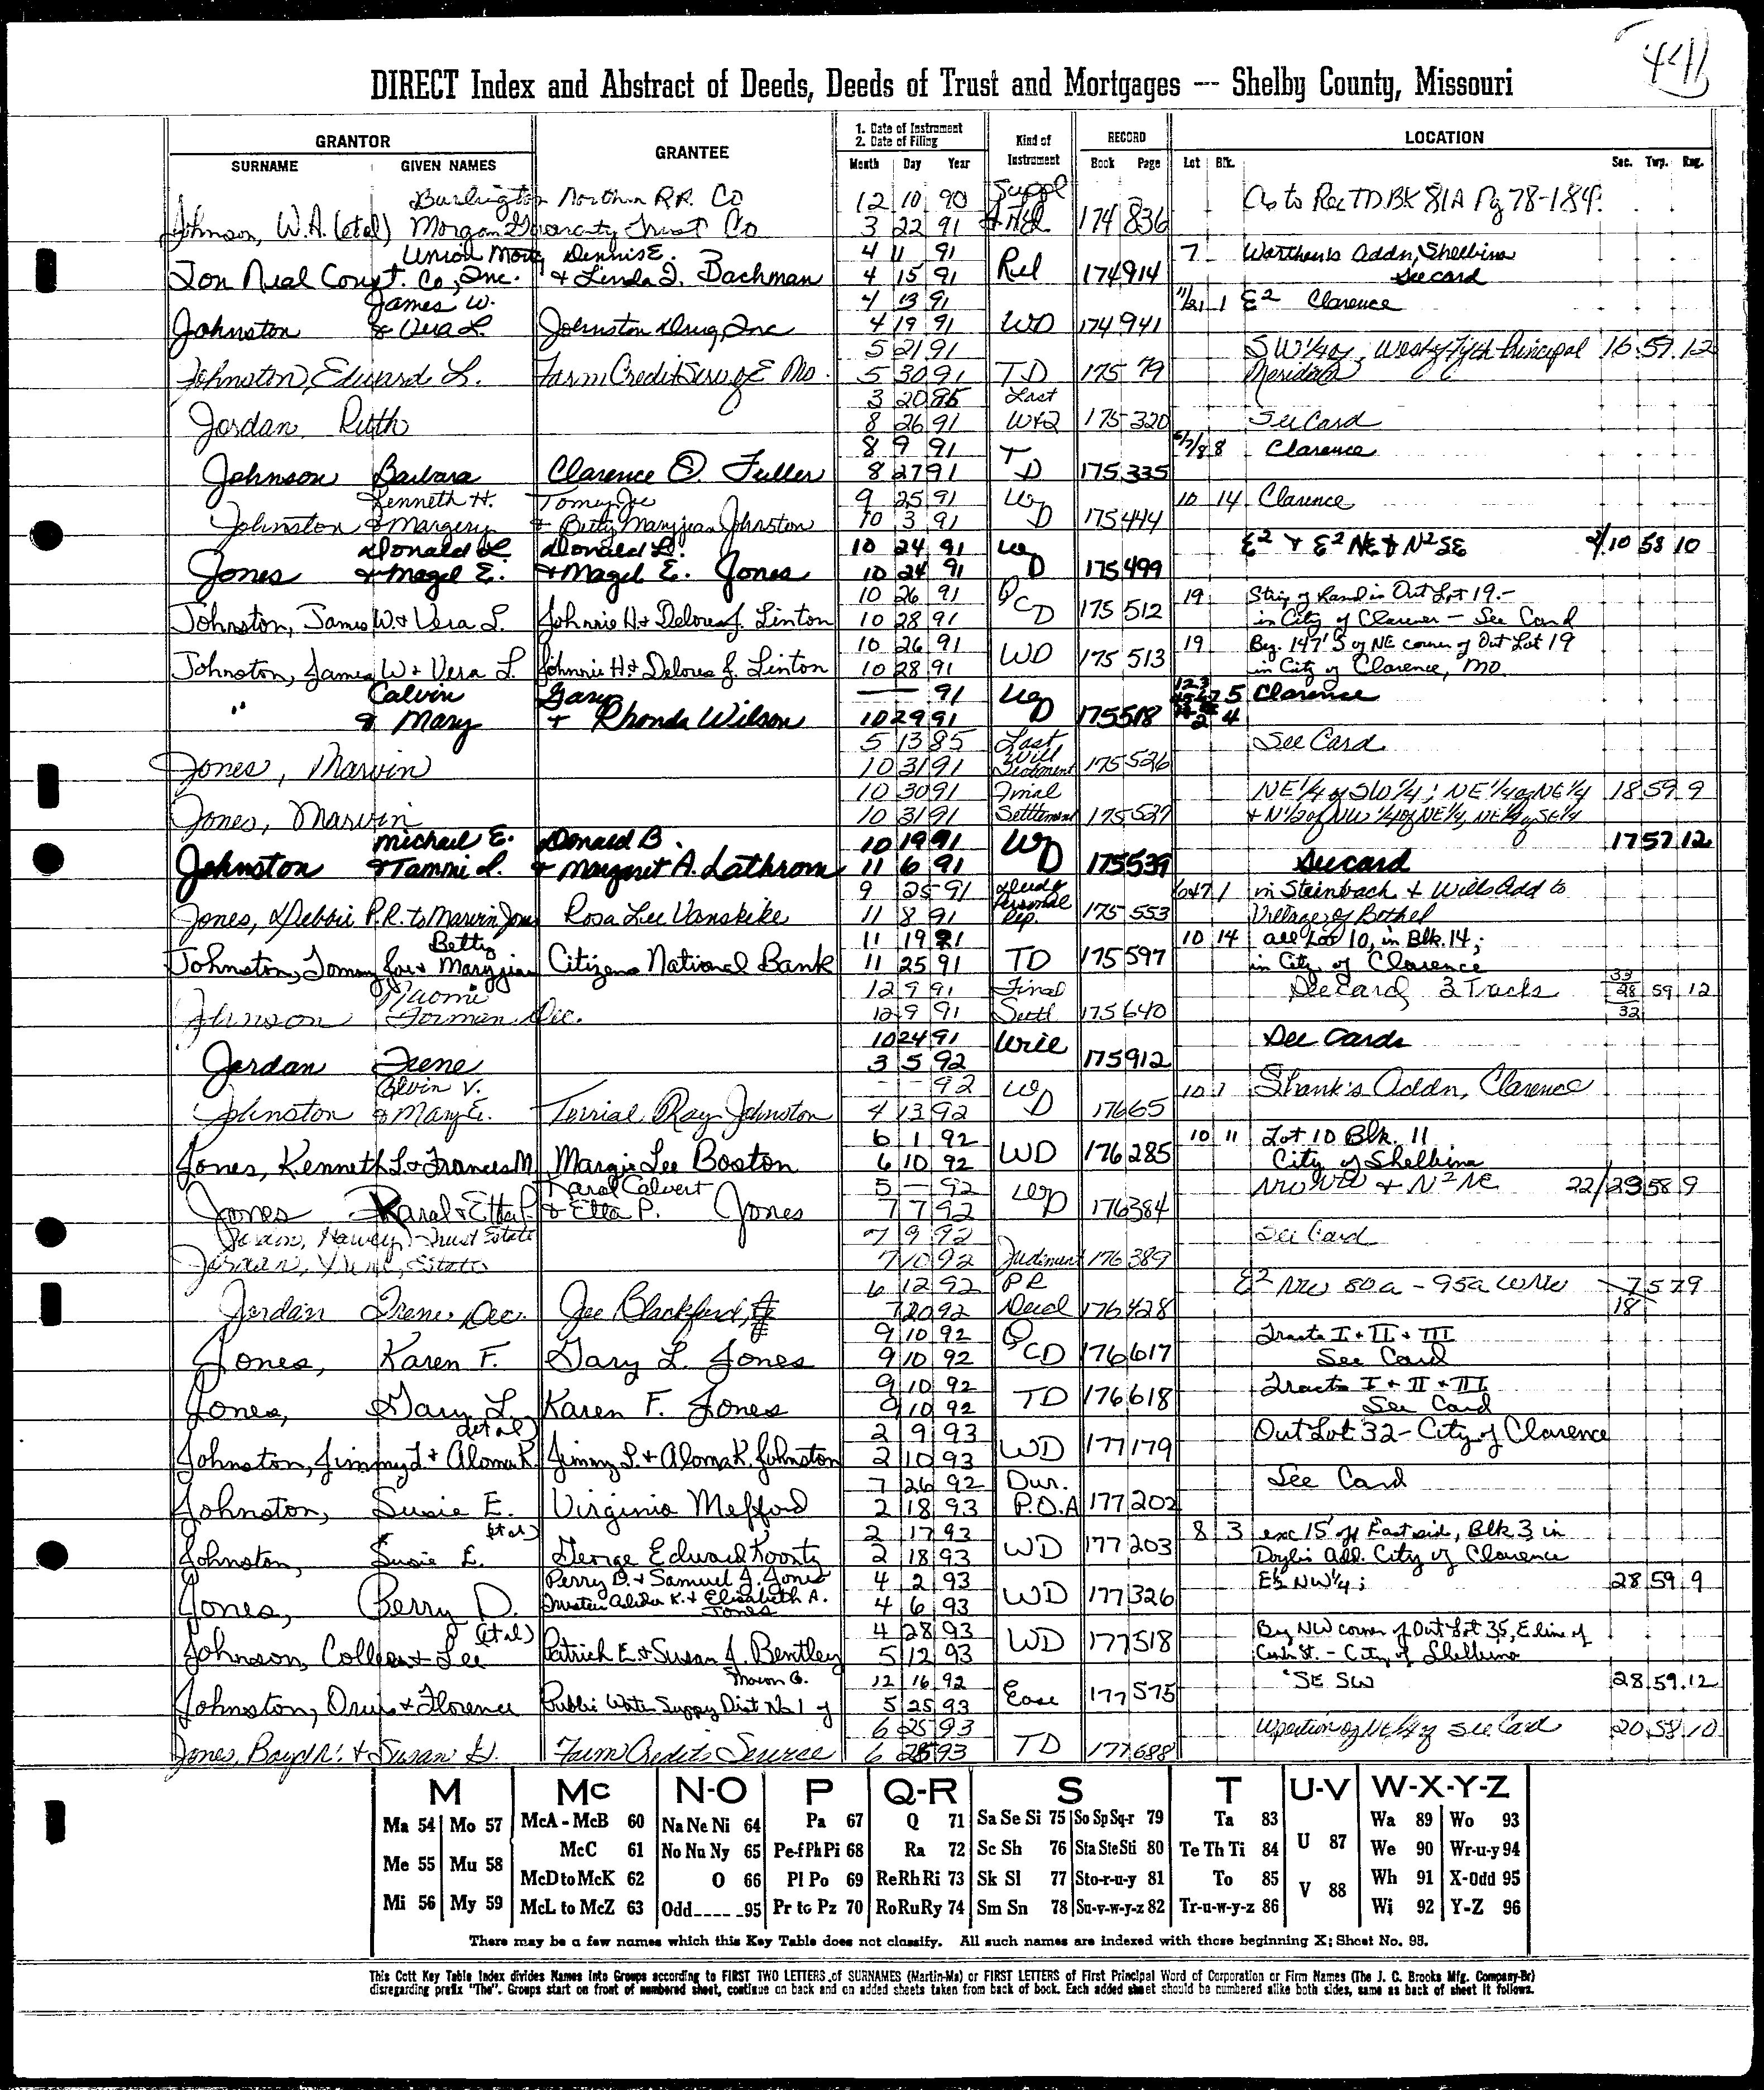 441
DIRECT Index and Abstract of Deeds, Deeds of Trust and Mortgages -- Shelby County, Missouri
GRANTOR GRANTEE 1. Date of Instrument 2. Date of Filing Kind of Instrument RECORD LOCATION
SURNAME GIVEN NAMES Month Day Year Book Page Lot Blk. Sec. Twp. Rng.
Burlington Northern RR. Co 12 10 90 Suppl As to Rec TD. BK 81A Pg 78-184.
Johnson, W.A. (etal) Morgan Guaranty Trust Co 3 22 91 174 836
Union Mortg Dennis E. 4 11 91 7 Worthen's Addn, Shelbina
Jon Neal Const. Co, Inc. & Linda J. Bachman 4 15 91 Rel 174 914 See card
James W. 4 13 91 1 E2 Clarence
Johnston & Vera L. Johnston Drug, Inc 4 19 91 WD 174 941
5 21 91 SW 1/4 of, West of Fifth Principal 16 57 12
Johnston, Edward L. Farm Credit Serv of E Mo. 5 30 91 TD 175 79 Meridian
3 20 85 Last
Jordan Ruth 8 26 91 W&T 175 320 See Card
8 9 91 6/7/8 8 Clarence
Johnson Barbara Clarence O. Fuller 8 27 91 TD 175 335
Kenneth H. Tomey Joe 9 25 91 10 14 Clarence
Johnston & Margery & Betty Maryjean Johnston 10 3 91 WD 175 444
Donald L. Donald L. 10 24 91 E2 & E2 NE & N2 SE 2/10 58 10
Jones & Magel E. & Magel E. Jones 10 24 91 WD 175 499
10 26 91 19 Strip of Land in Out Lot 19.-
Johnston, James W. & Vera L. Johnnie H. & Delores J. Linton 10 28 91 QCD 175 512 in City of Clarence - See Card
10 26 91 19 Beg. 147' S of NE corner of Out Lot 19
Johnston, James W & Vera L. Johnnie H. & Delores J. Linton 10 28 91 WD 175 513 in City of Clarence, MO.
Calvin Gary — 91 5 Clarence
" & Mary & Rhonda Wilson 10 29 91 WD 175 518 2 4
5 13 85 Last Will See Card
Jones, Marvin 10 31 91 Testament 175 526
10 30 91 Final NE 1/4 of SW 1/4; NE 1/4 of NE 1/4 18 59 9
Jones, Marvin 10 31 91 Settlement 175 527 & N 1/2 of NW 1/4 of NE 1/4, NE 1/4 of SE 1/4
Michael E. Donald B. 10 19 91 17 57 12
Johnston & Tammi L. & Margaret A. Lathrom 11 6 91 WD 175 539 See card
9 25 91 Deed of Personal 6&7 1 in Steinbach & Wills Add to
Jones, Debbie P.R. to Marvin Jones Rosa Lee Vanskike 11 8 91 Rep. 175 553 Village of Bethel
Betty 11 19 91 10 14 all Lot 10, in Blk. 14;
Johnston, Tommy Joe & Maryjean Citizens National Bank 11 25 91 TD 175 597 in City of Clarence
Naomi 12 9 91 Final See Card, 3 Tracts 33 28 59 12
Johnson Forman Dec. 12 9 91 Settl 175 640 32
10 24 91 See Cards
Jordan Irene 3 5 92 Will 175 912
Calvin V. — — 92 10 1 Shank's Addn, Clarence
Johnston & Mary E. Terrial Ray Johnston 4 13 92 WD 176 65
6 1 92 10 11 Lot 10 Blk. 11
Jones, Kenneth L & Frances M Margie Lee Boston 6 10 92 WD 176 285 City of Shelbina
Karal Calvert 5 — 92 & N2 NE 22/23 58 9
Jones Karal & Etta P. & Etta P. Jones 7 7 92 WD 176 384
Jordan, Harvey, Trust Estate 7 9 92 See Card
Jordan, Irene, Estate 7 10 92 Judiment 176 389
6 12 92 PR E2 NW 80a - 95a W NW 7 57 9
Jordan Irene Dec. Joe Blackford, Jr 7 20 92 Deed 176 428 18
9 10 92 Tracts I + II + III
Jones, Karen F. Gary L. Jones 9 10 92 QCD 176 617 See Card
9 10 92 Tracts I + II + III
Jones, Gary L. Karen F. Jones 9 10 92 TD 176 618 See Card
(etal) 2 9 93 Out Lot 32 - City of Clarence
Johnston, Jimmy L. & Aloma K. Jimmy L. & Aloma K. Johnston 2 10 93 WD 177 179
7 26 92 Dur. See Card
Johnston, Susie E. Virginia Mefford 2 18 93 P.O.A 177 202
(etal) 2 17 93 8 3 exc 15' off East side, Blk 3 in
Johnston, Susie E. George Edward Koontz 2 18 93 WD 177 203 Doyle's Add. City of Clarence
Perry D. & Samuel J. Jones 4 2 93 E 1/2 NW 1/4; 28 59 9
Jones, Perry D. Trustee Alida K. & Elizabeth A. Jones 4 6 93 WD 177 326
(etal) 4 28 93 Beg NW corner of Out Lot 35, E line of
Johnson, Colleen & Lee Patrick E. & Susan J. Bentley 5 12 93 WD 177 518 Center St. - City of Shelbina
Macon Co. 12 16 92 SE SW 28 59 12
Johnston, Orus & Florence Public Water Suppy Dist No 1 of 5 25 93 Ease 177 575
6 25 93 A portion of NE 1/4 of See Card 20 58 10
Jones, Boyd N. & Susan G. Farm Credit Service 6 28 93 TD 177 688
M Mc N-O P Q-R S T U-V W-X-Y-Z
Ma 54 Mo 57 McA - McB 60 Na Ne Ni 64 Pa 67 Q 71 Sa Se Si 75 So Sp Sq-r 79 Ta 83 U 87 Wa 89 Wo 93
McC 61 No Nu Ny 65 Pe-f Ph Pi 68 Ra 72 Sc Sh 76 Sta Ste Sti 80 Te Th Ti 84 We 90 Wr-u-y 94
Me 55 Mu 58 McD to McK 62 O 66 Pl Po 69 Re Rh Ri 73 Sk Sl 77 Sto-r-u-y 81 To 85 V 88 Wh 91 X-Odd 95
Mi 56 My 59 McL to McZ 63 Odd---- -95 Pr to Pz 70 Ro Ru Ry 74 Sm Sn 78 Su-v-w-y-z 82 Tr-u-w-y-z 86 Wi 92 Y-Z 96
There may be a few names which this Key Table does not classify. All such names are indexed with those beginning X; Sheet No. 95.
This Cott Key Table Index divides Names Into Groups according to FIRST TWO LETTERS of SURNAMES (Martin-Ma) or FIRST LETTERS of First Principal Word of Corporation or Firm Names (The J. C. Brooks Mfg. Company-Br)
disregarding prefix "The". Groups start on front of numbered sheet, continue on back and on added sheets taken from back of book. Each added sheet should be numbered alike both sides, same as back of sheet it follows.